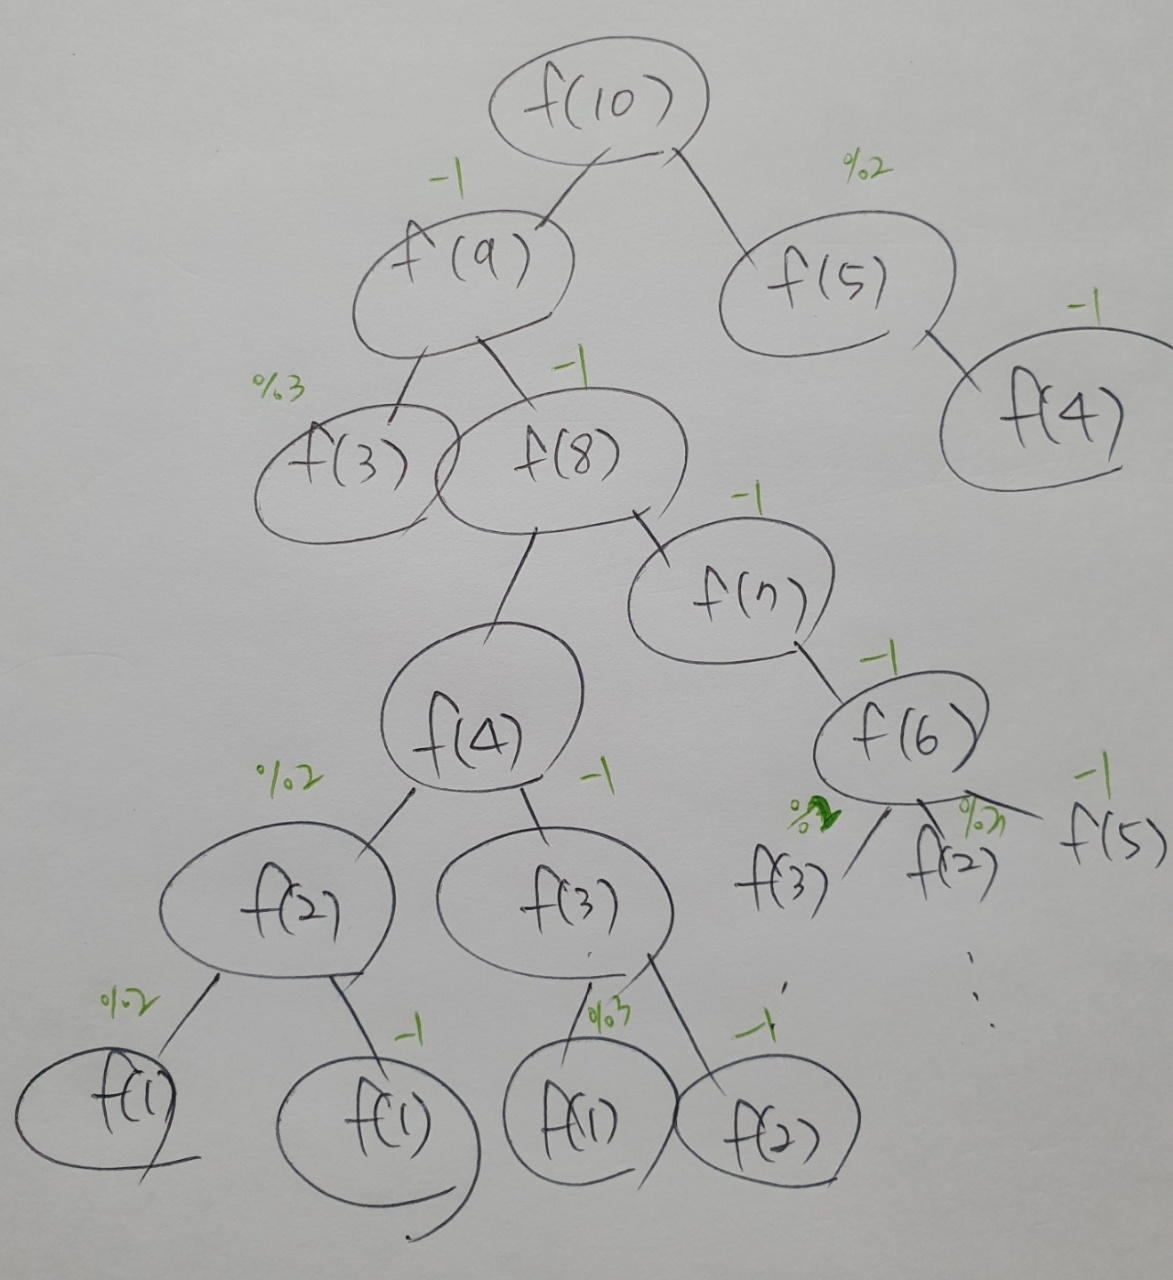 f(10)
-1 %2
f(9) f(5)
-1
%3 -1
f(3) f(8) f(4)
-1
f(7)
-1
f(4) f(6)
%2 -1 -1
f(3) %2 f(2) f(5)
f(2) f(3)
%2 -1 %3 -1
f(1) f(1) f(1) f(2)